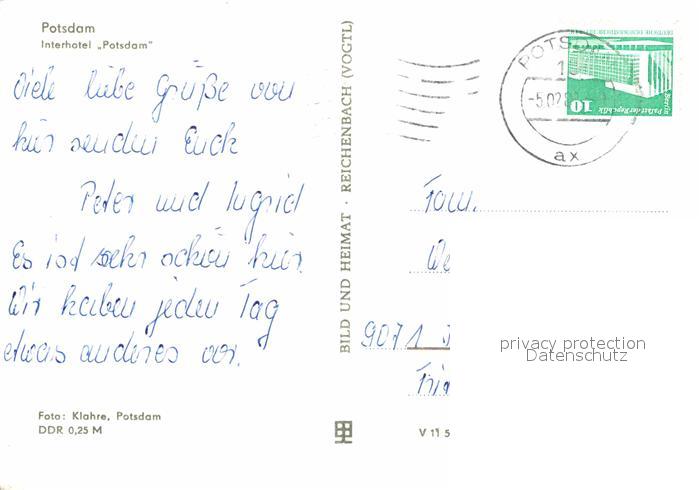 Potsdam
Interhotel „Potsdam"
Viele liebe Grüße von
hier senden Euch
Peter und Ingrid
Es ist sehr schön hier.
Wir haben jeden Tag
etwas anderes vor.
Foto: Klahre, Potsdam
DDR 0,25 M
BILD UND HEIMAT · REICHENBACH (VOGTL)
V 11 5
POTSD
-5.02.
ax
10
Palast der Republik
Berlin
Fam.
We
9071
privacy protection
Datenschutz